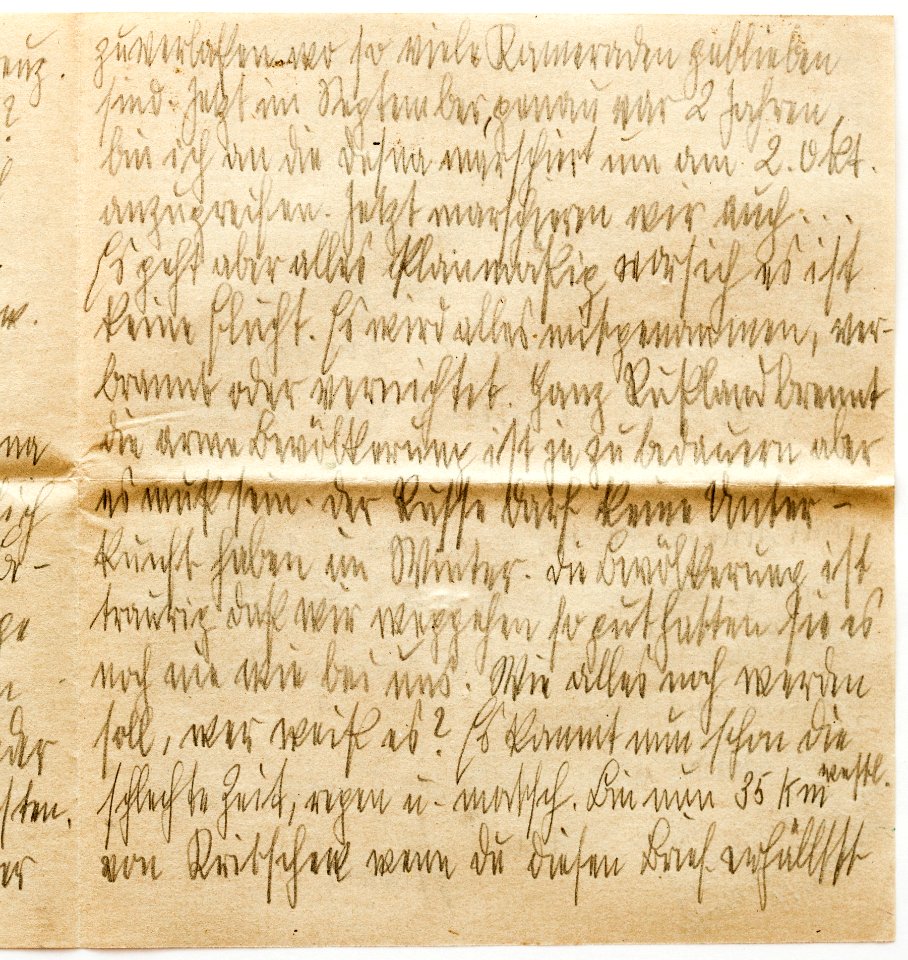 zuverlassen wo so viele Kameraden geblieben
sind. Jetzt im September, genau vor 2 Jahren,
bin ich an die Desna marschiert um am 2. Okt.
anzugreifen. Jetzt marschieren wir auch...
Es geht aber alles Planmäßig vor sich es ist
keine Flucht. Es wird alles mitgenommen, ver-
brannt oder vernichtet. Ganz Rußland brennt
die arme Bevölkerung ist ja zu bedauern aber
es muß sein. der Russe darf keine Unter-
kunft haben im Winter. die Bevölkerung ist
traurig daß wir weggehen so gut hatten sie es
noch nie wie bei uns. Wie alles noch werden
soll, wer weiß es? Es kommt nun schon die
schlechte Zeit, regen u. matsch. Bin nun 35 km westl.
von Kritschew wenn du diesen Brief erhällsst
euz.
?
w.
na
lich
d-
ge
n
der
sten.
er